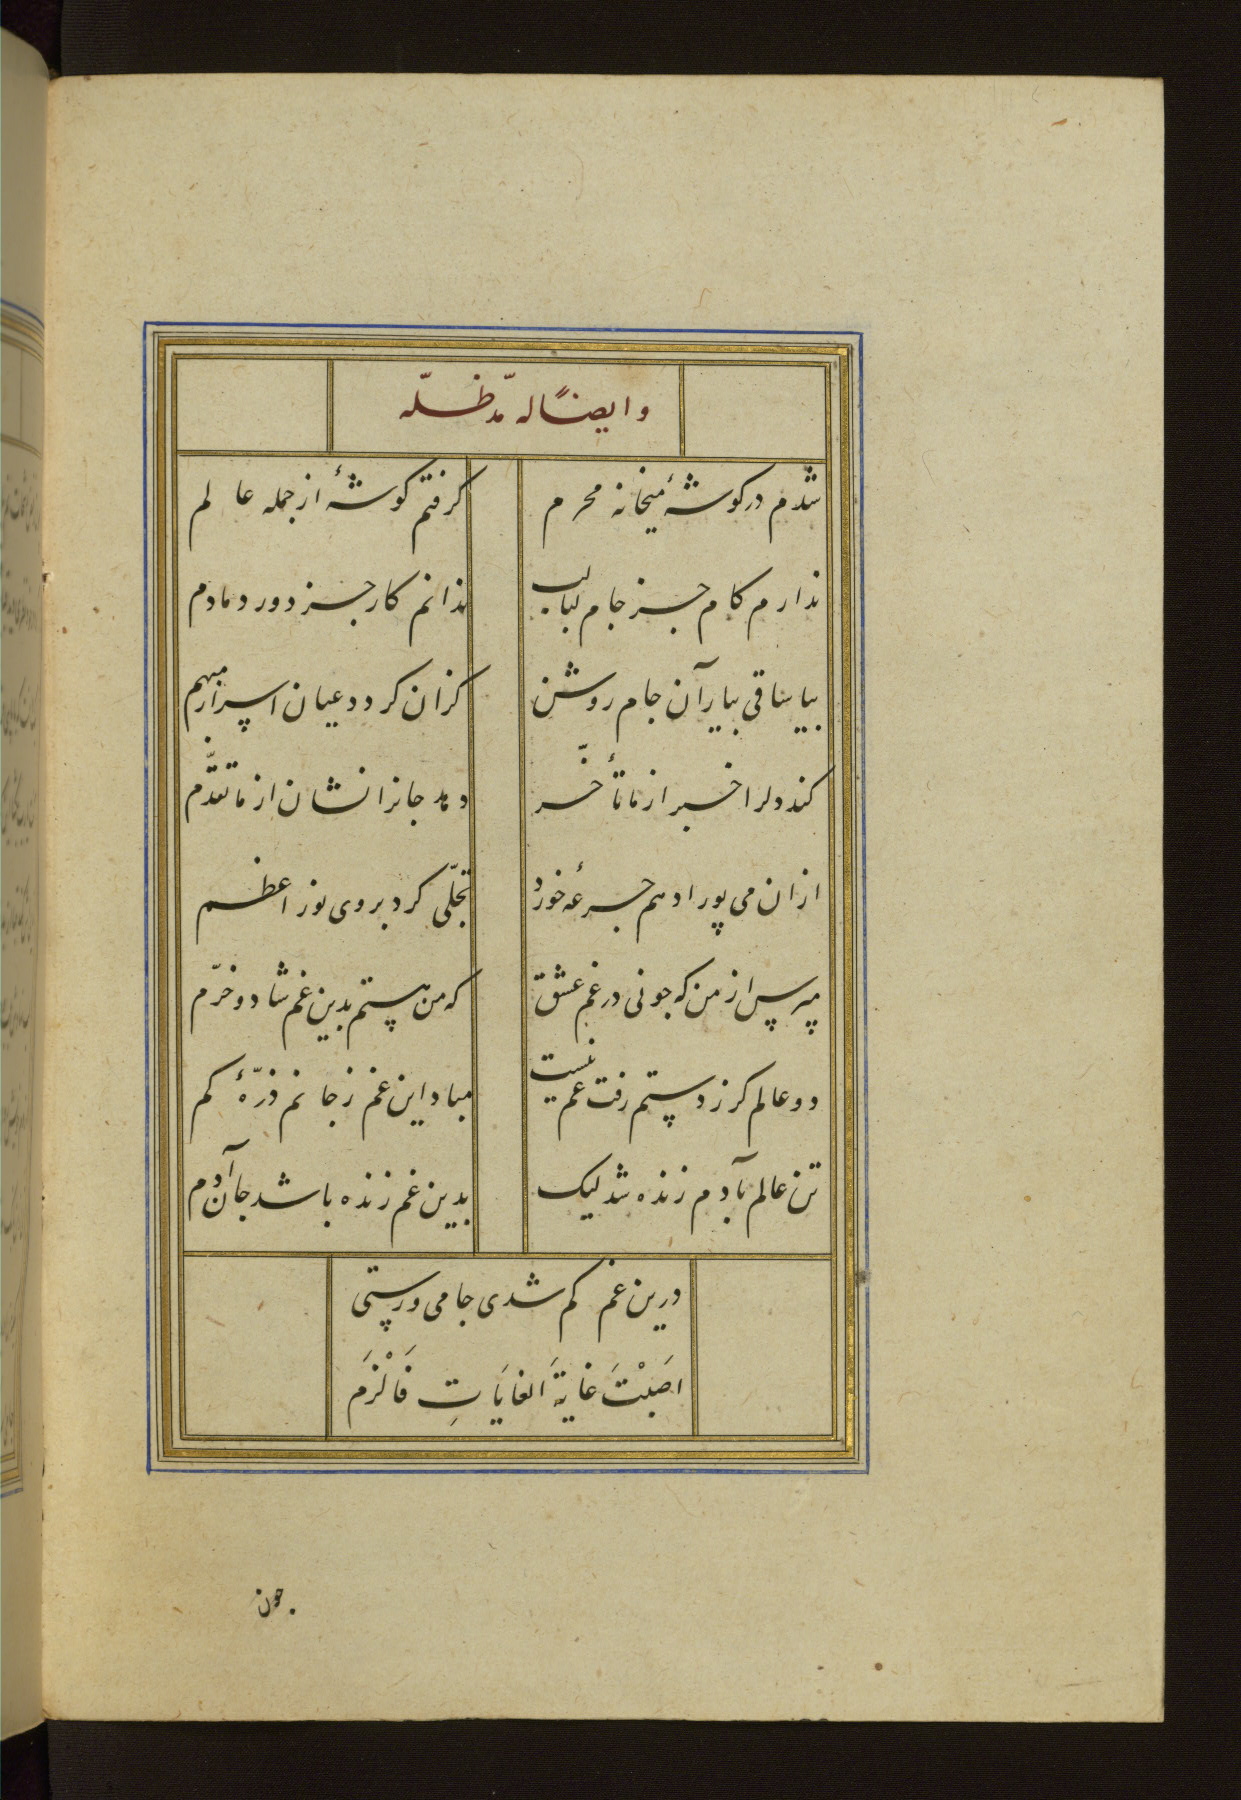 وایضاً له مدّ ظلّه
شدم در کوشهٔ میخانه محرم کرفتم کوشهٔ از جمله عالم
ندارم کام جز جام لبالب ندانم کار جز دور دمادم
بیا ساقی بیار آن جام روشن کزان کردد عیان اسرار مبهم
کند دلرا خبر از ما تأخّر دهد جانرا نشان از ما تقدّم
ازان می پور ادهم جرعهٔ خورد تجلّی کرد بروی نور اعظم
مپرس از من که چونی در غم عشق که من هستم بدین غم شاد و خرّم
دو عالم کر ز دستم رفت غم نیست مباد این غم ز جانم ذرّهٔ کم
تن عالم بآدم زنده شد لیک بدین غم زنده باشد جان آدم
درین غم کم شدی جامی و رستی
اَصَبْتَ غایَةَ الغایَاتِ فَالْزَم
چون